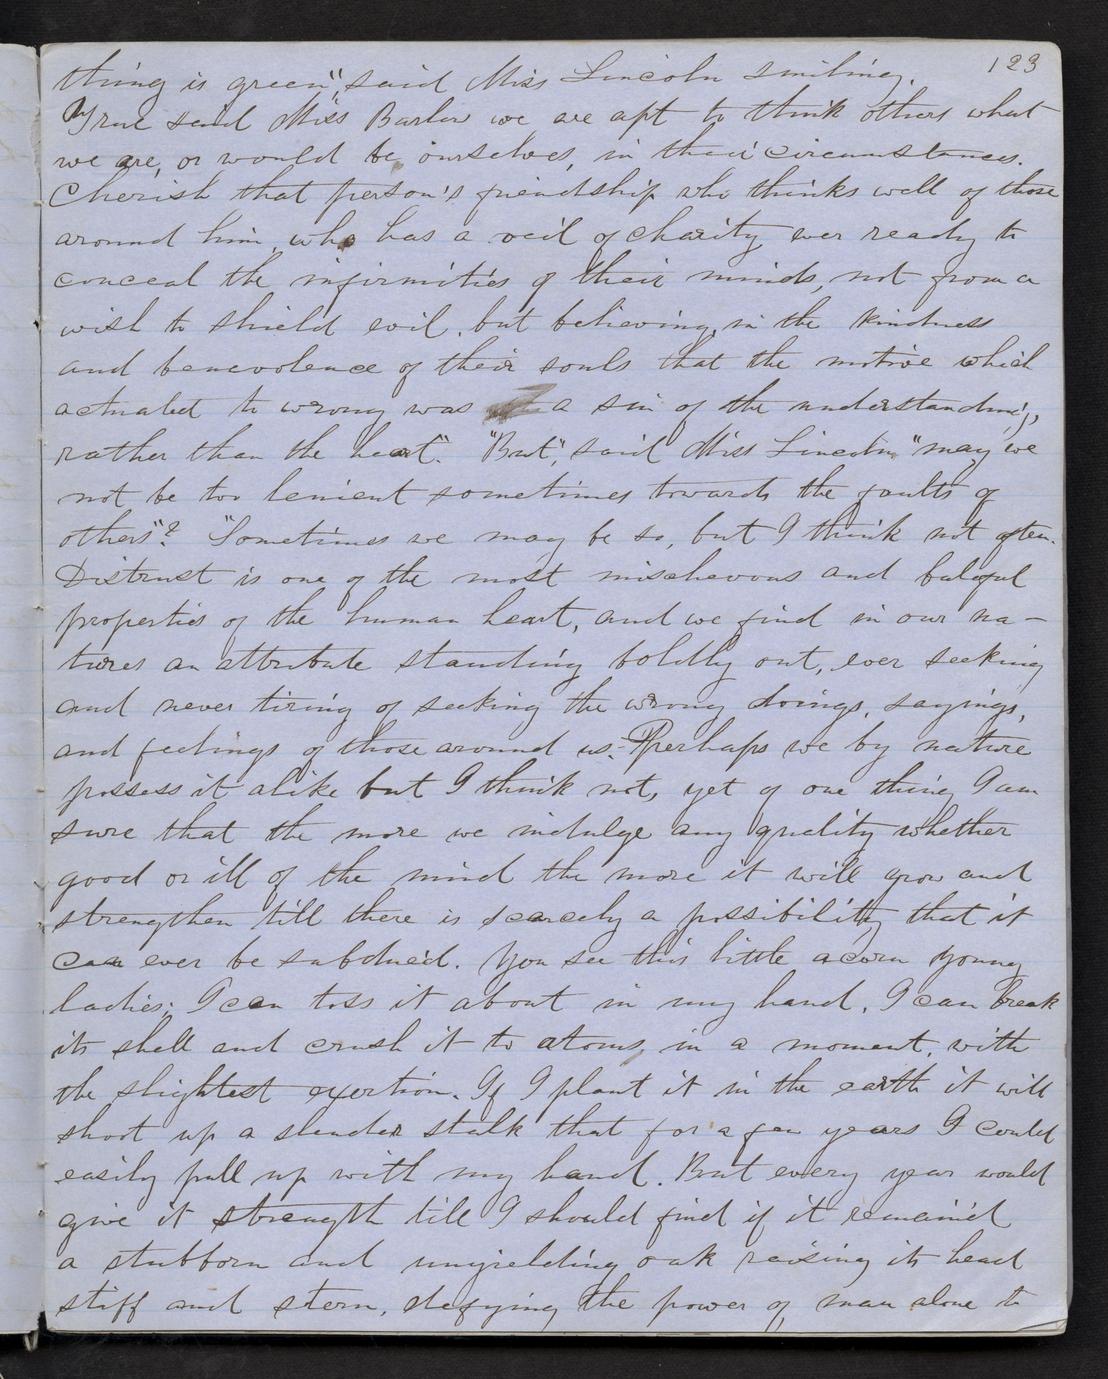 123
thing is green" said Miss Lincoln smiling.
"True said Miss Barlow we are apt to think others what
we are, or would be ourselves, in their circumstances.
Cherish that person's friendship who thinks well of those
around him, who has a veil of charity ever ready to
conceal the infirmities of their minds, not from a
wish to shield evil, but believing, in the kindness
and benevolence of their souls that the motive which
actuated to wrong was a sin of the understanding,
rather than the heart". "But", said Miss Lincoln "may we
not be too lenient sometimes towards the faults of
others"? "Sometimes we may be so, but I think not often.
Distrust is one of the most mischevous and baleful
properties of the human heart, and we find in our na-
tures an attribute standing boldly out, ever seeking
and never tiring of seeking the wrong doings, sayings,
and feelings of those around us. Perhaps we by nature
possess it alike but I think not, yet of one thing I am
sure that the more we indulge any quality whether
good or ill of the mind the more it will grow and
strengthen till there is scarcely a possibility that it
can ever be subdued. You see this little acorn young
ladies; I can toss it about in my hand, I can break
its shell and crush it to atoms, in a moment, with
the slightest exertion. If I plant it in the earth it will
shoot up a slender stalk that for a few years I could
easily pull up with my hand. But every year would
give it strength till I should find if it remain'd
a stubborn and unyielding oak raising its head
stiff and stern, defying the power of man alone to